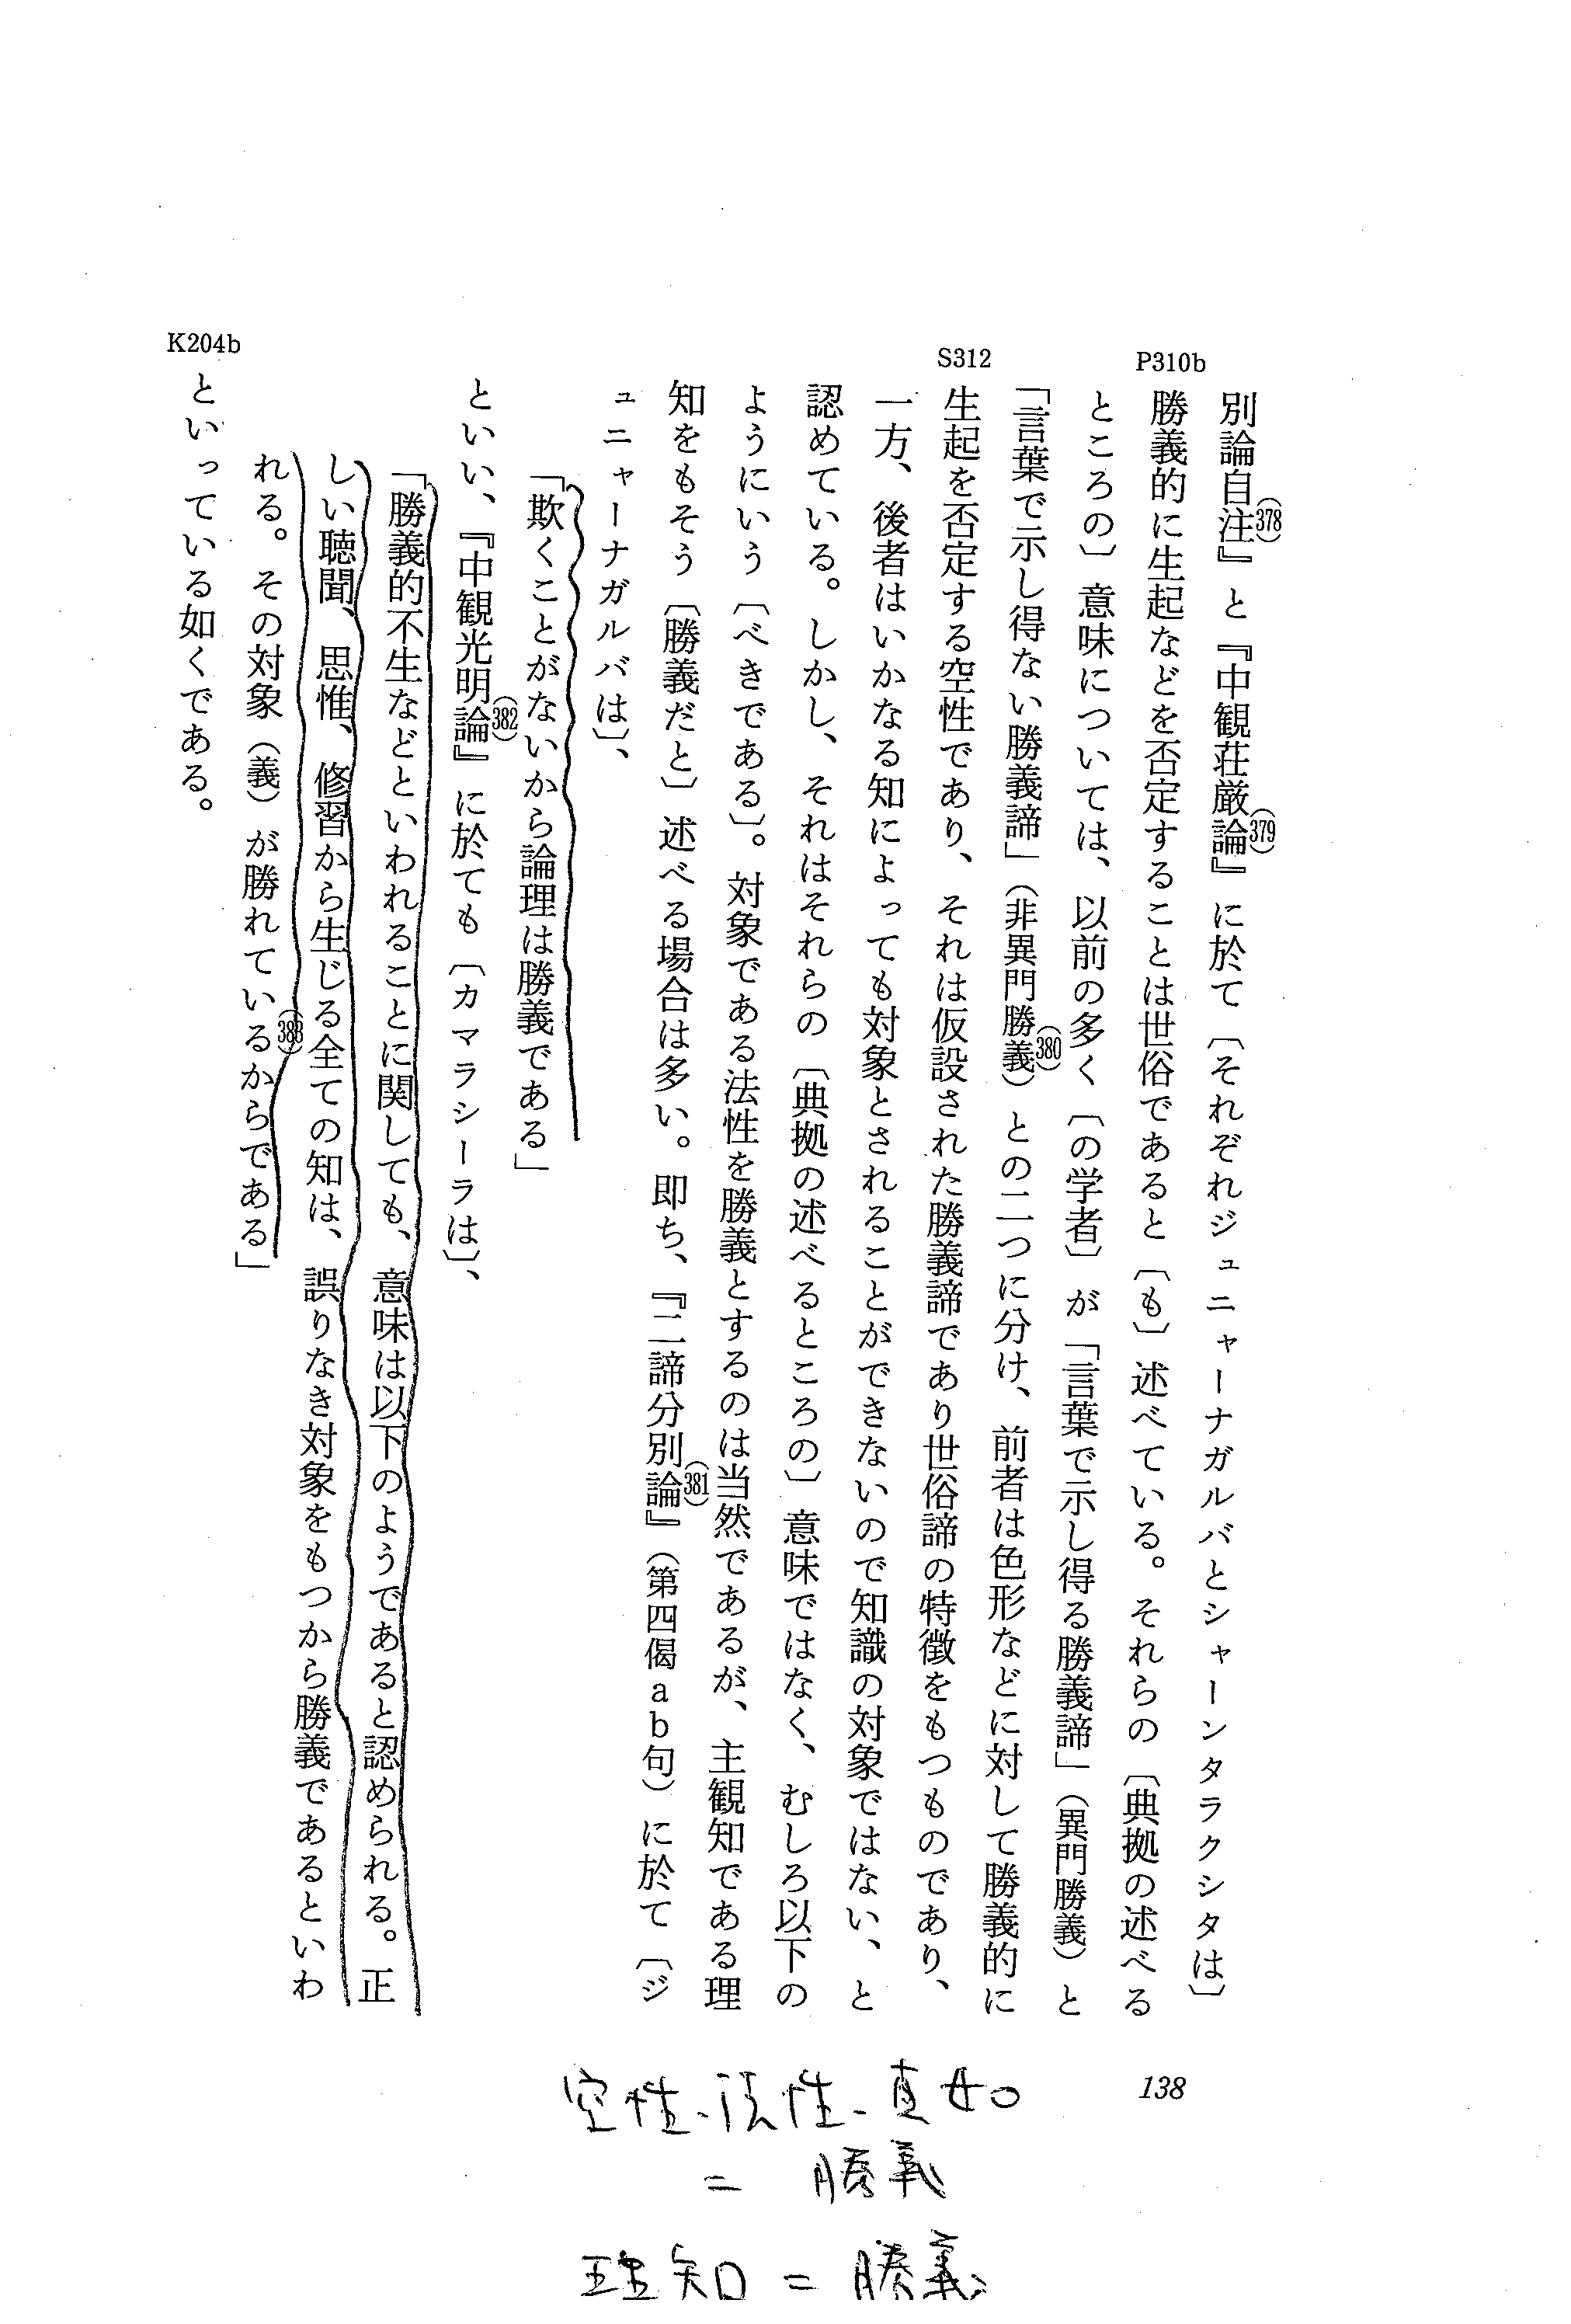 P310b
S312
K204b
別論自注(378)』と『中観荘厳論(379)』に於て〔それぞれジュニャーナガルバとシャーンタラクシタは〕
勝義的に生起などを否定することは世俗であると〔も〕述べている。それらの〔典拠の述べる
ところの〕意味については、以前の多く〔の学者〕が「言葉で示し得る勝義諦」(異門勝義)と
「言葉で示し得ない勝義諦」(非異門勝義(380))との二つに分け、前者は色形などに対して勝義的に
生起を否定する空性であり、それは仮設された勝義諦であり世俗諦の特徴をもつものであり、
一方、後者はいかなる知によっても対象とされることができないので知識の対象ではない、と
認めている。しかし、それはそれらの〔典拠の述べるところの〕意味ではなく、むしろ以下の
ようにいう〔べきである〕。対象である法性を勝義とするのは当然であるが、主観知である理
知をもそう〔勝義だと〕述べる場合は多い。即ち、『二諦分別論(381)』(第四偈ab句)に於て〔ジ
ュニャーナガルバは〕、
「欺くことがないから論理は勝義である」
といい、『中観光明論(382)』に於ても〔カマラシーラは〕、
「勝義的不生などといわれることに関しても、意味は以下のようであると認められる。正
しい聴聞、思惟、修習から生じる全ての知は、誤りなき対象をもつから勝義であるといわ
れる。その対象(義)が勝れている(383)からである」
といっている如くである。
138
空性、法性、真如
= 勝義
理知 = 勝義